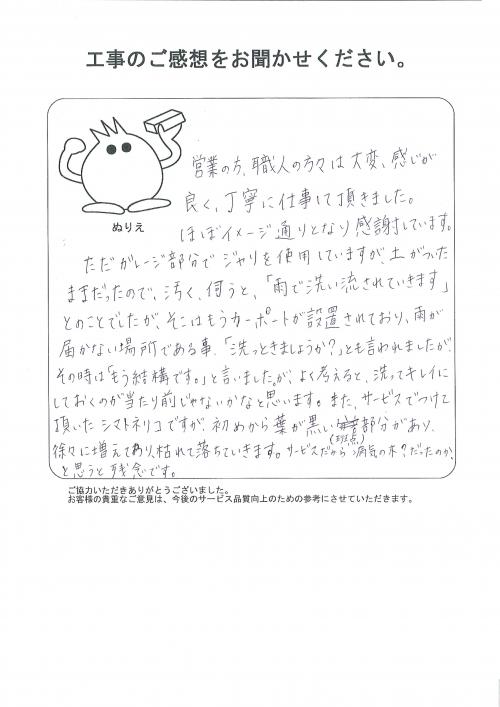 工事のご感想をお聞かせください。
ぬりえ
営業の方、職人の方々は大変、感じが
良く、丁寧に仕事して頂きました。
ほぼイメージ通りとなり感謝しています。
ただガレージ部分でジャリを使用していますが、土がついた
ままだったので、汚く、伺うと、「雨で洗い流されていきます」
とのことでしたが、そこはもうカーポートが設置されており、雨が
届かない場所である事、「洗っときましょうか?」とも言われましたが、
その時は「もう結構です。」と言いましたが、よく考えると、洗ってキレイに
しておくのが当たり前じゃないかなと思います。また、サービスでつけて
頂いたシマトネリコですが、初めから葉が黒い部分があり、
(斑点)
徐々に増えており、枯れて落ちていきます。サービスだから病気の木?だったのか?
と思うと残念です。
ご協力いただきありがとうございました。
お客様の貴重なご意見は、今後のサービス品質向上のための参考にさせていただきます。